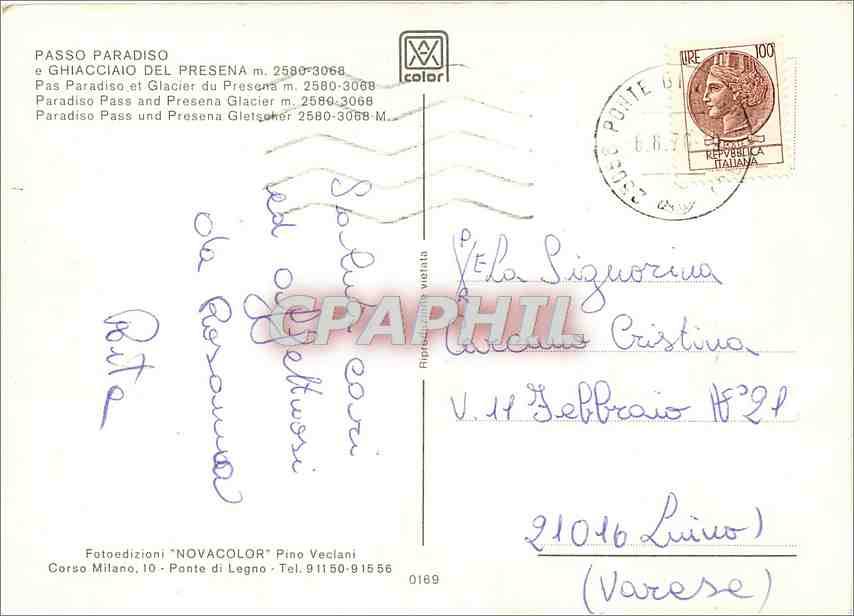 PASSO PARADISO
e GHIACCIAIO DEL PRESENA m. 2580-3068
Pas Paradiso et Glacier du Presena m. 2580-3068
Paradiso Pass and Presena Glacier m. 2580-3068
Paradiso Pass und Presena Gletscher 2580-3068 M.
color
LIRE 100
REPVBBLICA
ITALIANA
25056 PONTE DI
6.8.76
Saluti cari
ed affettuosi
da Rosanna
Rita
Riproduzione vietata
La Signorina
Carcano Cristina
V. 11 Febbraio N° 21
21016 Luino
(Varese)
CPAPHIL
Fotoedizioni "NOVACOLOR" Pino Veclani
Corso Milano, 10 - Ponte di Legno - Tel. 91150-91556
0169